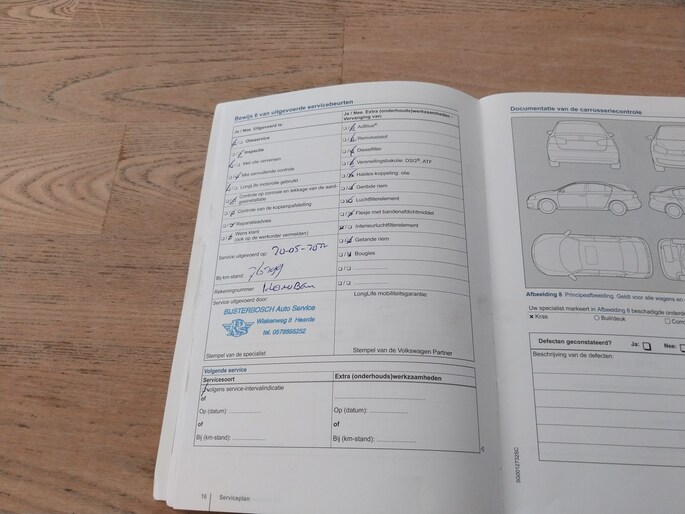 Bewijs 6 van uitgevoerde servicebeurten
Ja / Nee Uitgevoerd is:
Olieservice
Inspectie
Met olie verversen
Met aanvullende controle
LongLife motorolie gebruikt
Controle op corrosie en lekkage van de aardgasinstallatie
Controle van de koplampafstelling
Reparatieadvies
Wens klant
(ook op de werkorder vermelden)
Service uitgevoerd op: 20-05-2022
Bij km-stand:
Rekeningnummer:
Service uitgevoerd door:
BIJSTERBOSCH Auto Service
Weteringweg 8 Heerde
tel. 0578695252
Stempel van de specialist
Ja / Nee Extra (onderhouds)werkzaamheden -
Vervanging van:
AdBlue®
Remvloeistof
Dieselfilter
Versnellingsbakolie: DSG®, ATF
Haldex-koppeling: olie
Getande riem
Luchtfilterelement
Flesje met bandenafdichtmiddel
Interieurluchtfilterelement
Getande riem
Bougies
LongLife mobiliteitsgarantie:
Stempel van de Volkswagen Partner
Volgende service
Servicesoort
Extra (onderhouds)werkzaamheden
volgens service-intervalindicatie
of
Op (datum):
of
Bij (km-stand):
Op (datum):
of
Bij (km-stand):
16 Serviceplan
Documentatie van de carrosseriecontrole
Afbeelding 8 Principeafbeelding. Geldt voor alle wagens en
Uw specialist markeert in Afbeelding 8 beschadigde onderde
x Kras
Buil/deuk
Defecten geconstateerd? Ja: Nee:
Beschrijving van de defecten: